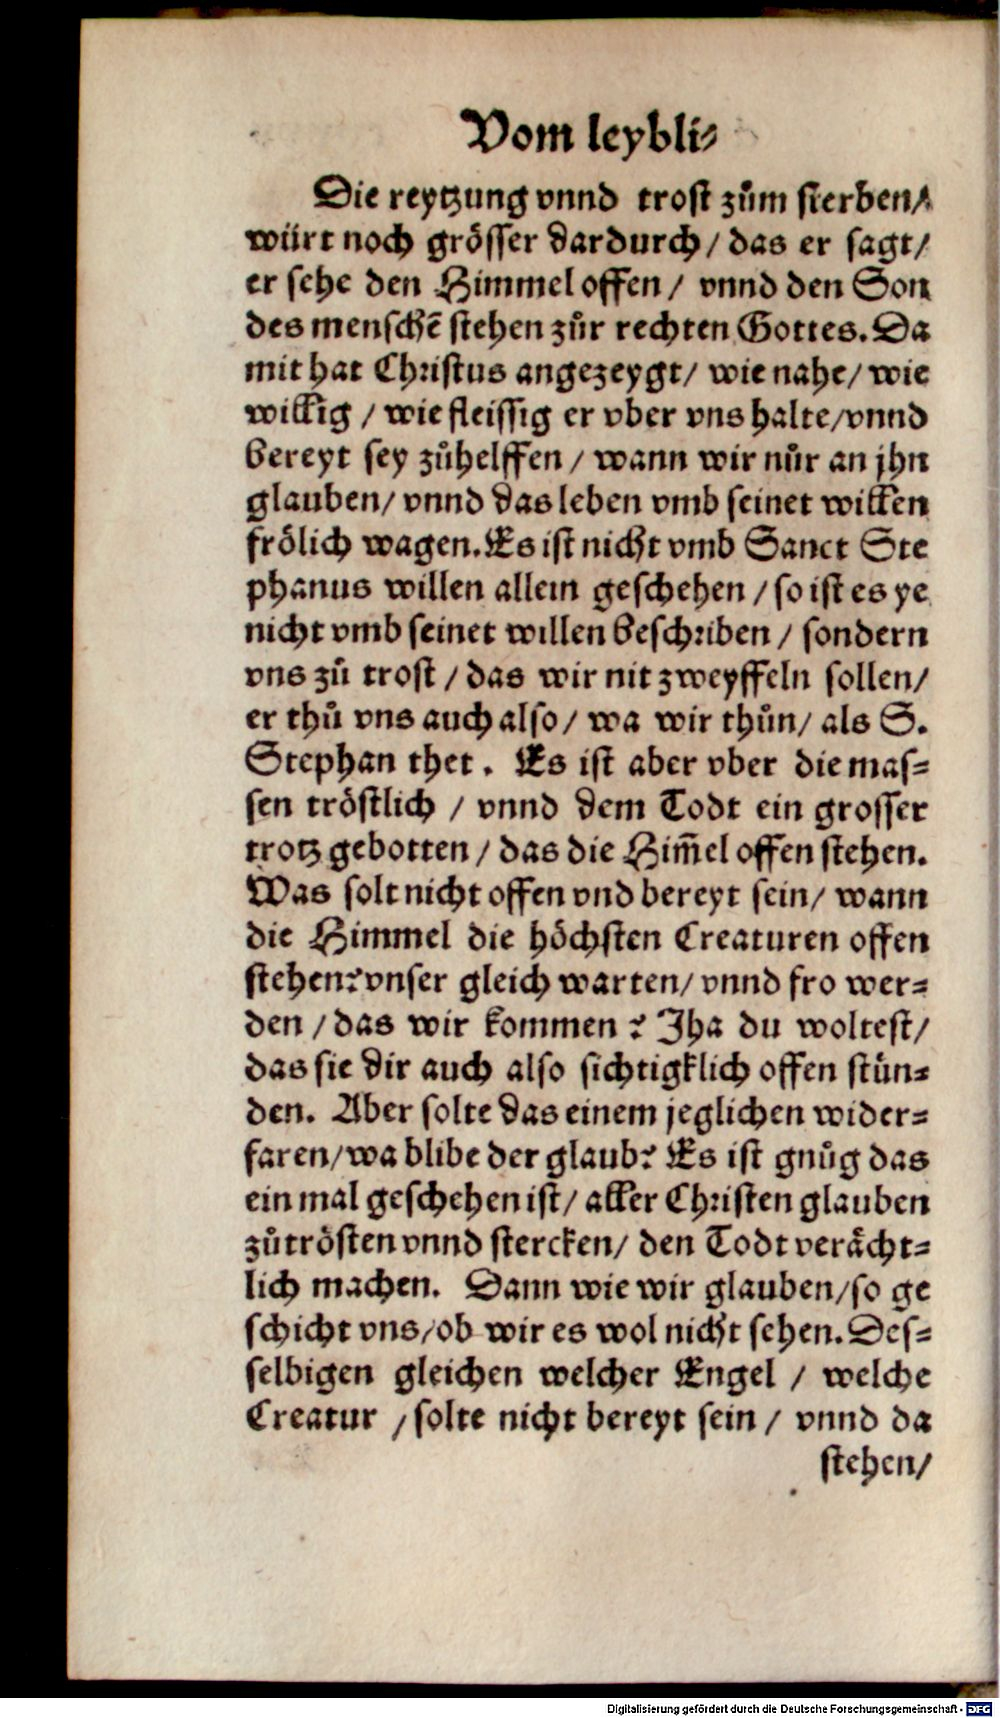 Vom leybli⸗
Die reytzung vnnd trost zům sterben/
würt noch grösser dardurch / das er sagt /
er sehe den Himmel offen / vnnd den Son
des menschē stehen zůr rechten Gottes. Da
mit hat Christus angezeygt / wie nahe / wie
willig / wie fleissig er vber vns halte / vnnd
bereyt sey zůhelffen / wann wir nůr an jhn
glauben / vnnd das leben vmb seinet willen
frölich wagen. Es ist nicht vmb Sanct Ste
phanus willen allein geschehen / so ist es ye
nicht vmb seinet willen beschriben / sondern
vns zů trost / das wir nit zweyffeln sollen /
er thů vns auch also / wa wir thůn / als S.
Stephan thet. Es ist aber vber die mas⸗
sen tröstlich / vnnd dem Todt ein grosser
trotz gebotten / das die Him̄el offen stehen.
Was solt nicht offen vnd bereyt sein / wann
die Himmel die höchsten Creaturen offen
stehen? vnser gleich warten / vnnd fro wer⸗
den / das wir kommen? Jha du woltest /
das sie dir auch also sichtigklich offen stün⸗
den. Aber solte das einem jeglichen wider⸗
faren / wa blibe der glaub? Es ist gnůg das
ein mal geschehen ist / aller Christen glauben
zů trösten vnnd stercken / den Todt verächt⸗
lich machen. Dann wie wir glauben / so ge
schicht vns / ob wir es wol nicht sehen. Des⸗
selbigen gleichen welcher Engel / welche
Creatur / solte nicht bereyt sein / vnnd da
stehen /
Digitalisierung gefördert durch die Deutsche Forschungsgemeinschaft - DFG